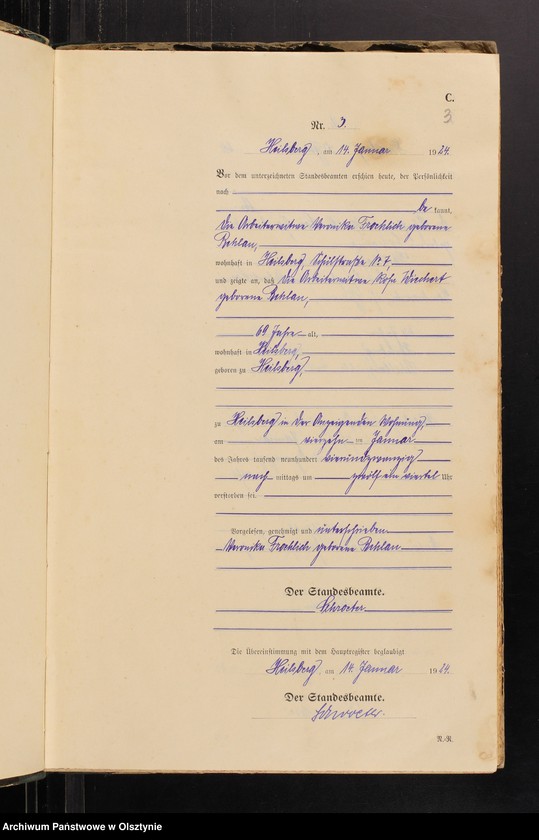 C.
3
Nr. 3.
Heilsberg, am 14. Januar 1924.
Vor dem unterzeichneten Standesbeamten erschien heute, der Persönlichkeit
nach
be kannt,
die Arbeiterwitwe Veronika Froehlich geborene
wohnhaft in Heilsberg, Schulstraße N. 7,
und zeigte an, daß die Arbeiterwitwe Rosa Wiechert
geborene
69 Jahre alt,
wohnhaft in Heilsberg,
geboren zu Heilsberg,
zu Heilsberg in der Anzeigenden Wohnung,
am vierzehn ten Januar
des Jahres tausend neunhundert vierundzwanzig
nach mittags um zwölf ein viertel Uhr
verstorben sei.
Vorgelesen, genehmigt und unterschrieben
Veronika Froehlich geborene
Der Standesbeamte.
Schroeter
Die Übereinstimmung mit dem Hauptregister beglaubigt
Heilsberg am 14. Januar 1924.
Der Standesbeamte.
Schroeter.
R.-R.
Archiwum Państwowe w Olsztynie